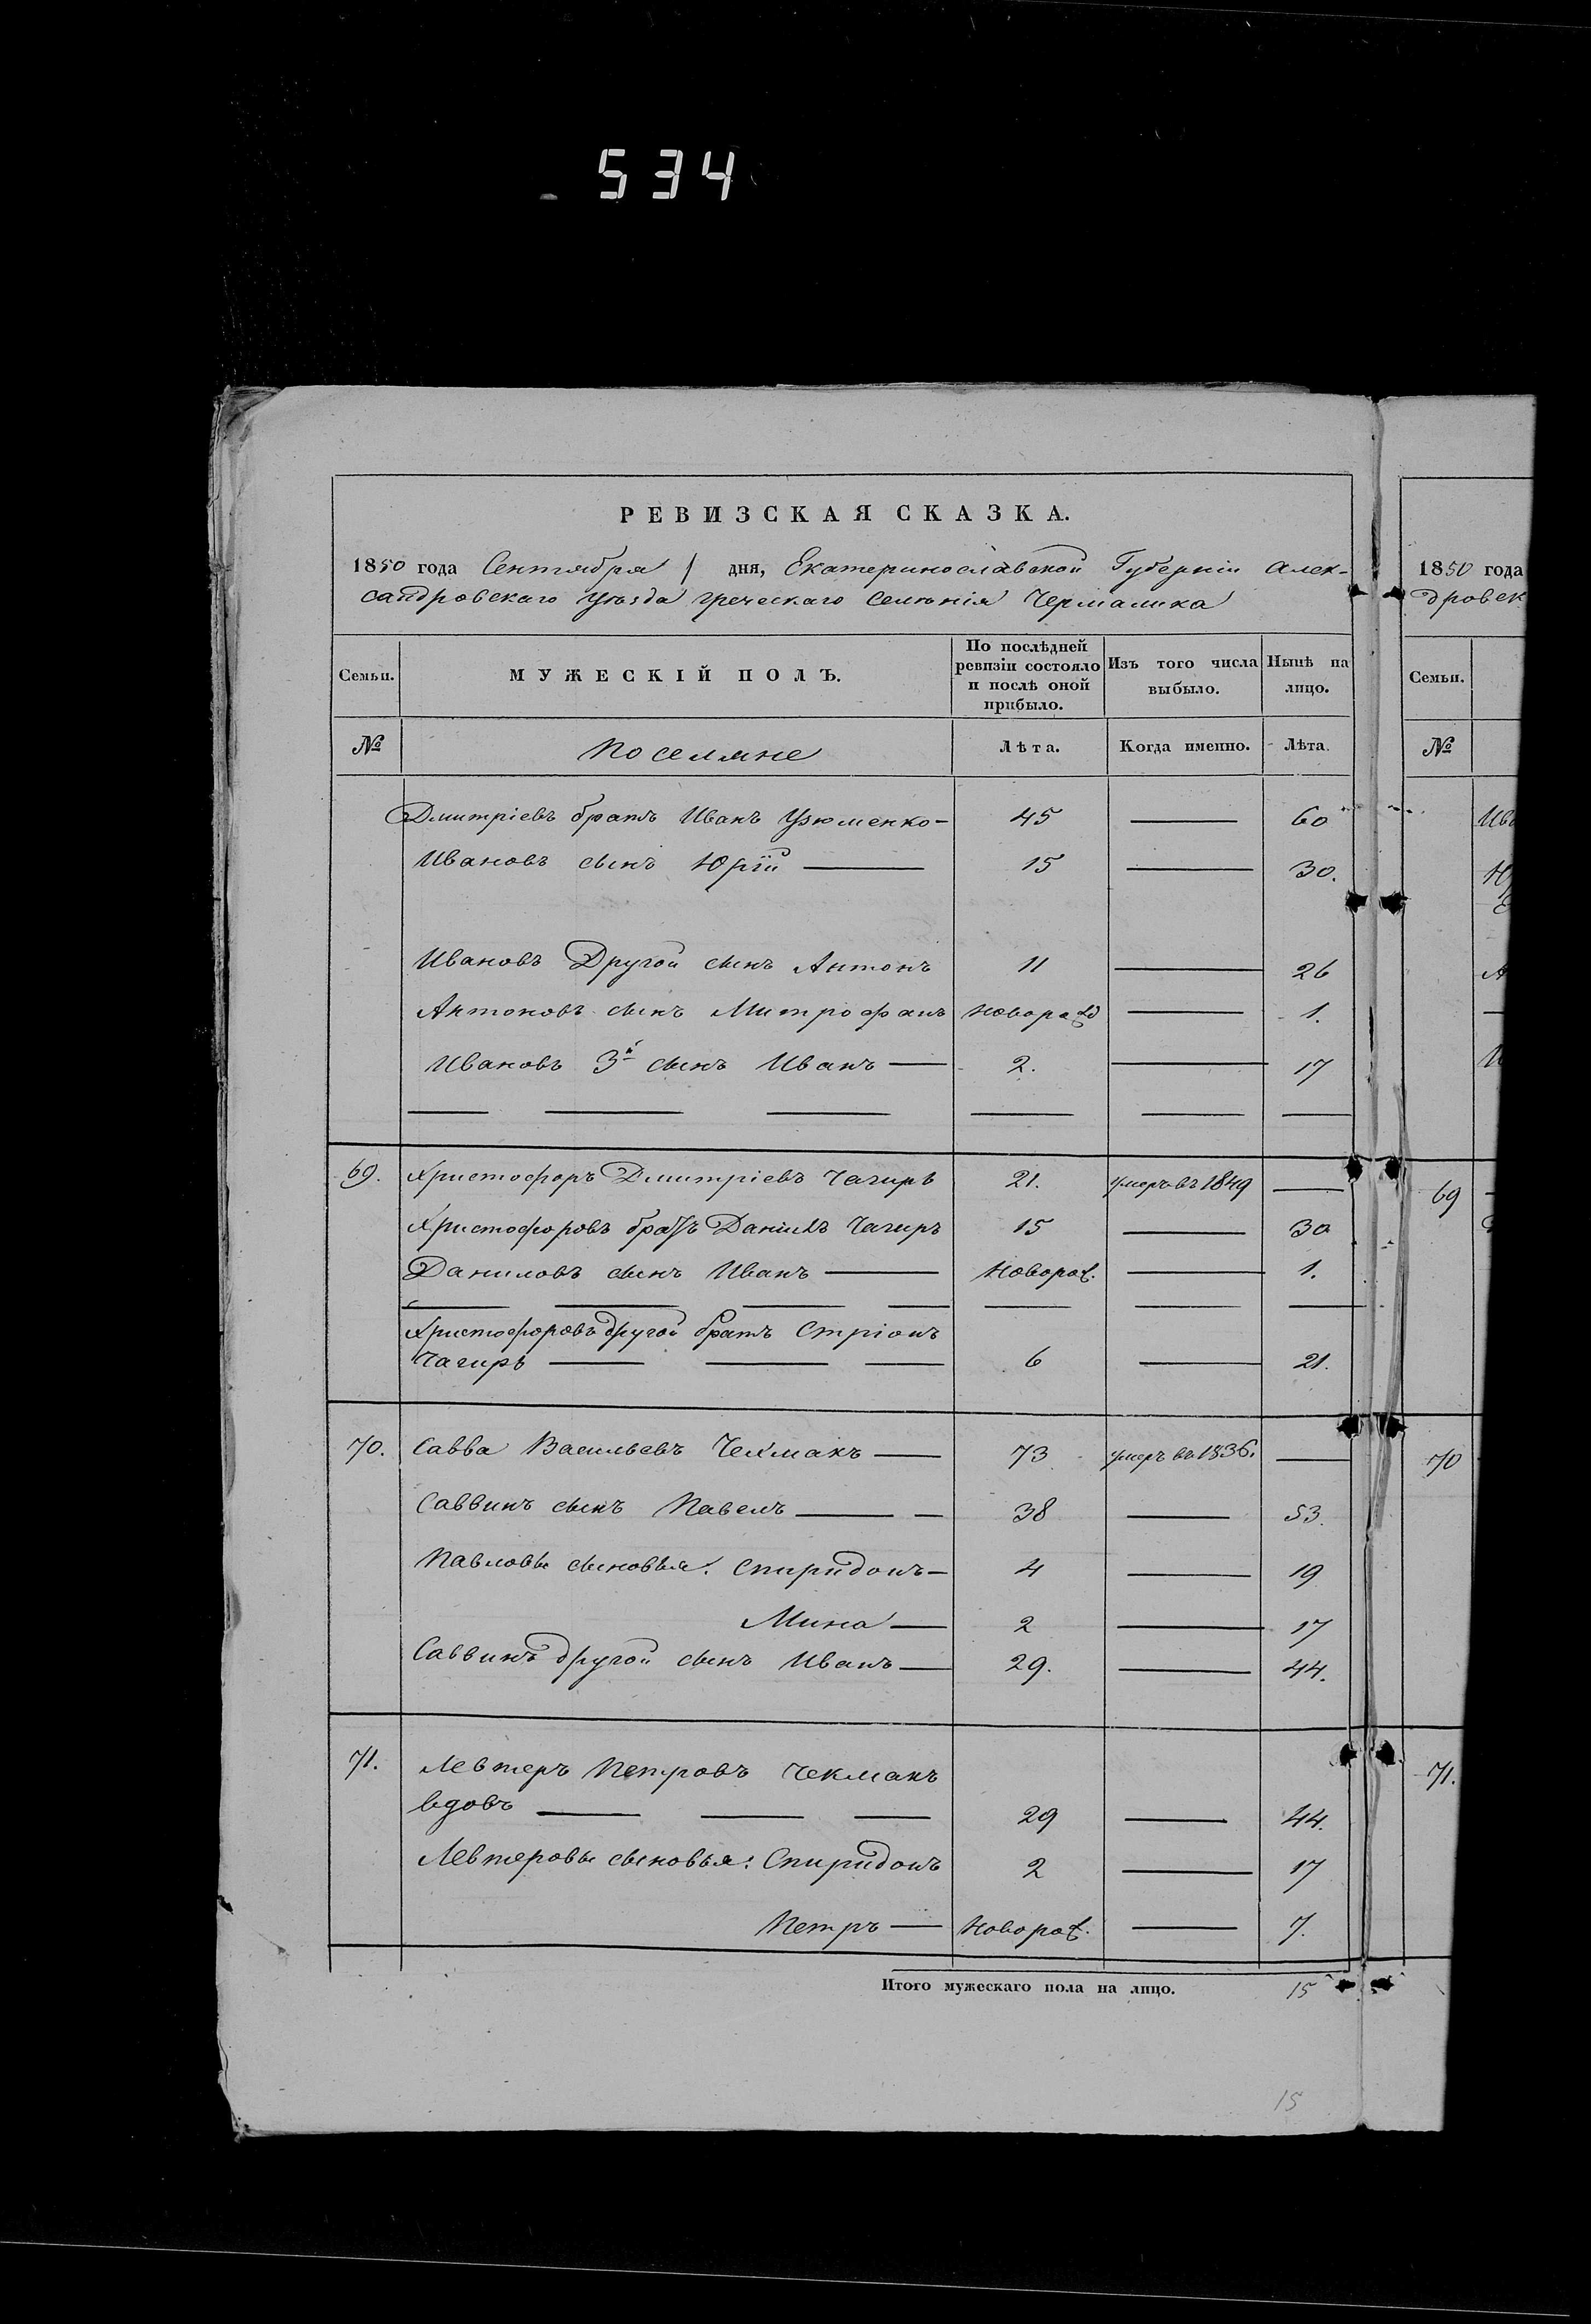 534
РЕВИЗСКАЯ СКАЗКА.
1850 года Сентября 1 дня, Екатеринославской Губерніи Алек-
сандровскаго Уѣзда греческаго Селѣнія Чермалика
Семьи.
МУЖЕСКІЙ ПОЛЪ.
По послѣдней
ревизіи состояло
и послѣ оной
прибыло.
Изъ того числа
выбыло.
Нынѣ на
лицо.
№
Поселяне
Лѣта.
Когда именно.
Лѣта.
Дмитріевъ братъ Иванъ Узюменко — 45 — 60
Ивановъ сынъ Юрій — 15 — 30.
Ивановъ Другой сынъ Антонъ 11 — 26
Антоновъ сынъ Митрофанъ новорожд — 1.
Ивановъ 3й сынъ Иванъ — 2. — 17
69. Христофоръ Дмитріевъ Чагиръ 21. умеръ въ 1849 —
Христофоровъ братъ Даніилъ Чагиръ 15 — 30
Даниловъ сынъ Иванъ — новорож. — 1.
Христофоровъ другой братъ Стріонъ
Чагиръ — 6 — 21.
70. Савва Васильевъ Чекмакъ — 73 умеръ въ 1836. —
Саввинъ сынъ Павелъ — 38 — 53.
Павловы сыновья: Спиридонъ — 4 — 19
Мина — 2 — 17
Саввинъ другой сынъ Иванъ — 29. — 44.
71. Левтеръ Петровъ Чекмакъ
вдовъ — 29 — 44.
Левтеровы сыновья: Спиридонъ 2 — 17
Петръ — новорож. — 7.
Итого мужескаго пола на лицо. 15
15
1850 года
дровск
Семьи.
№
69
70
71.